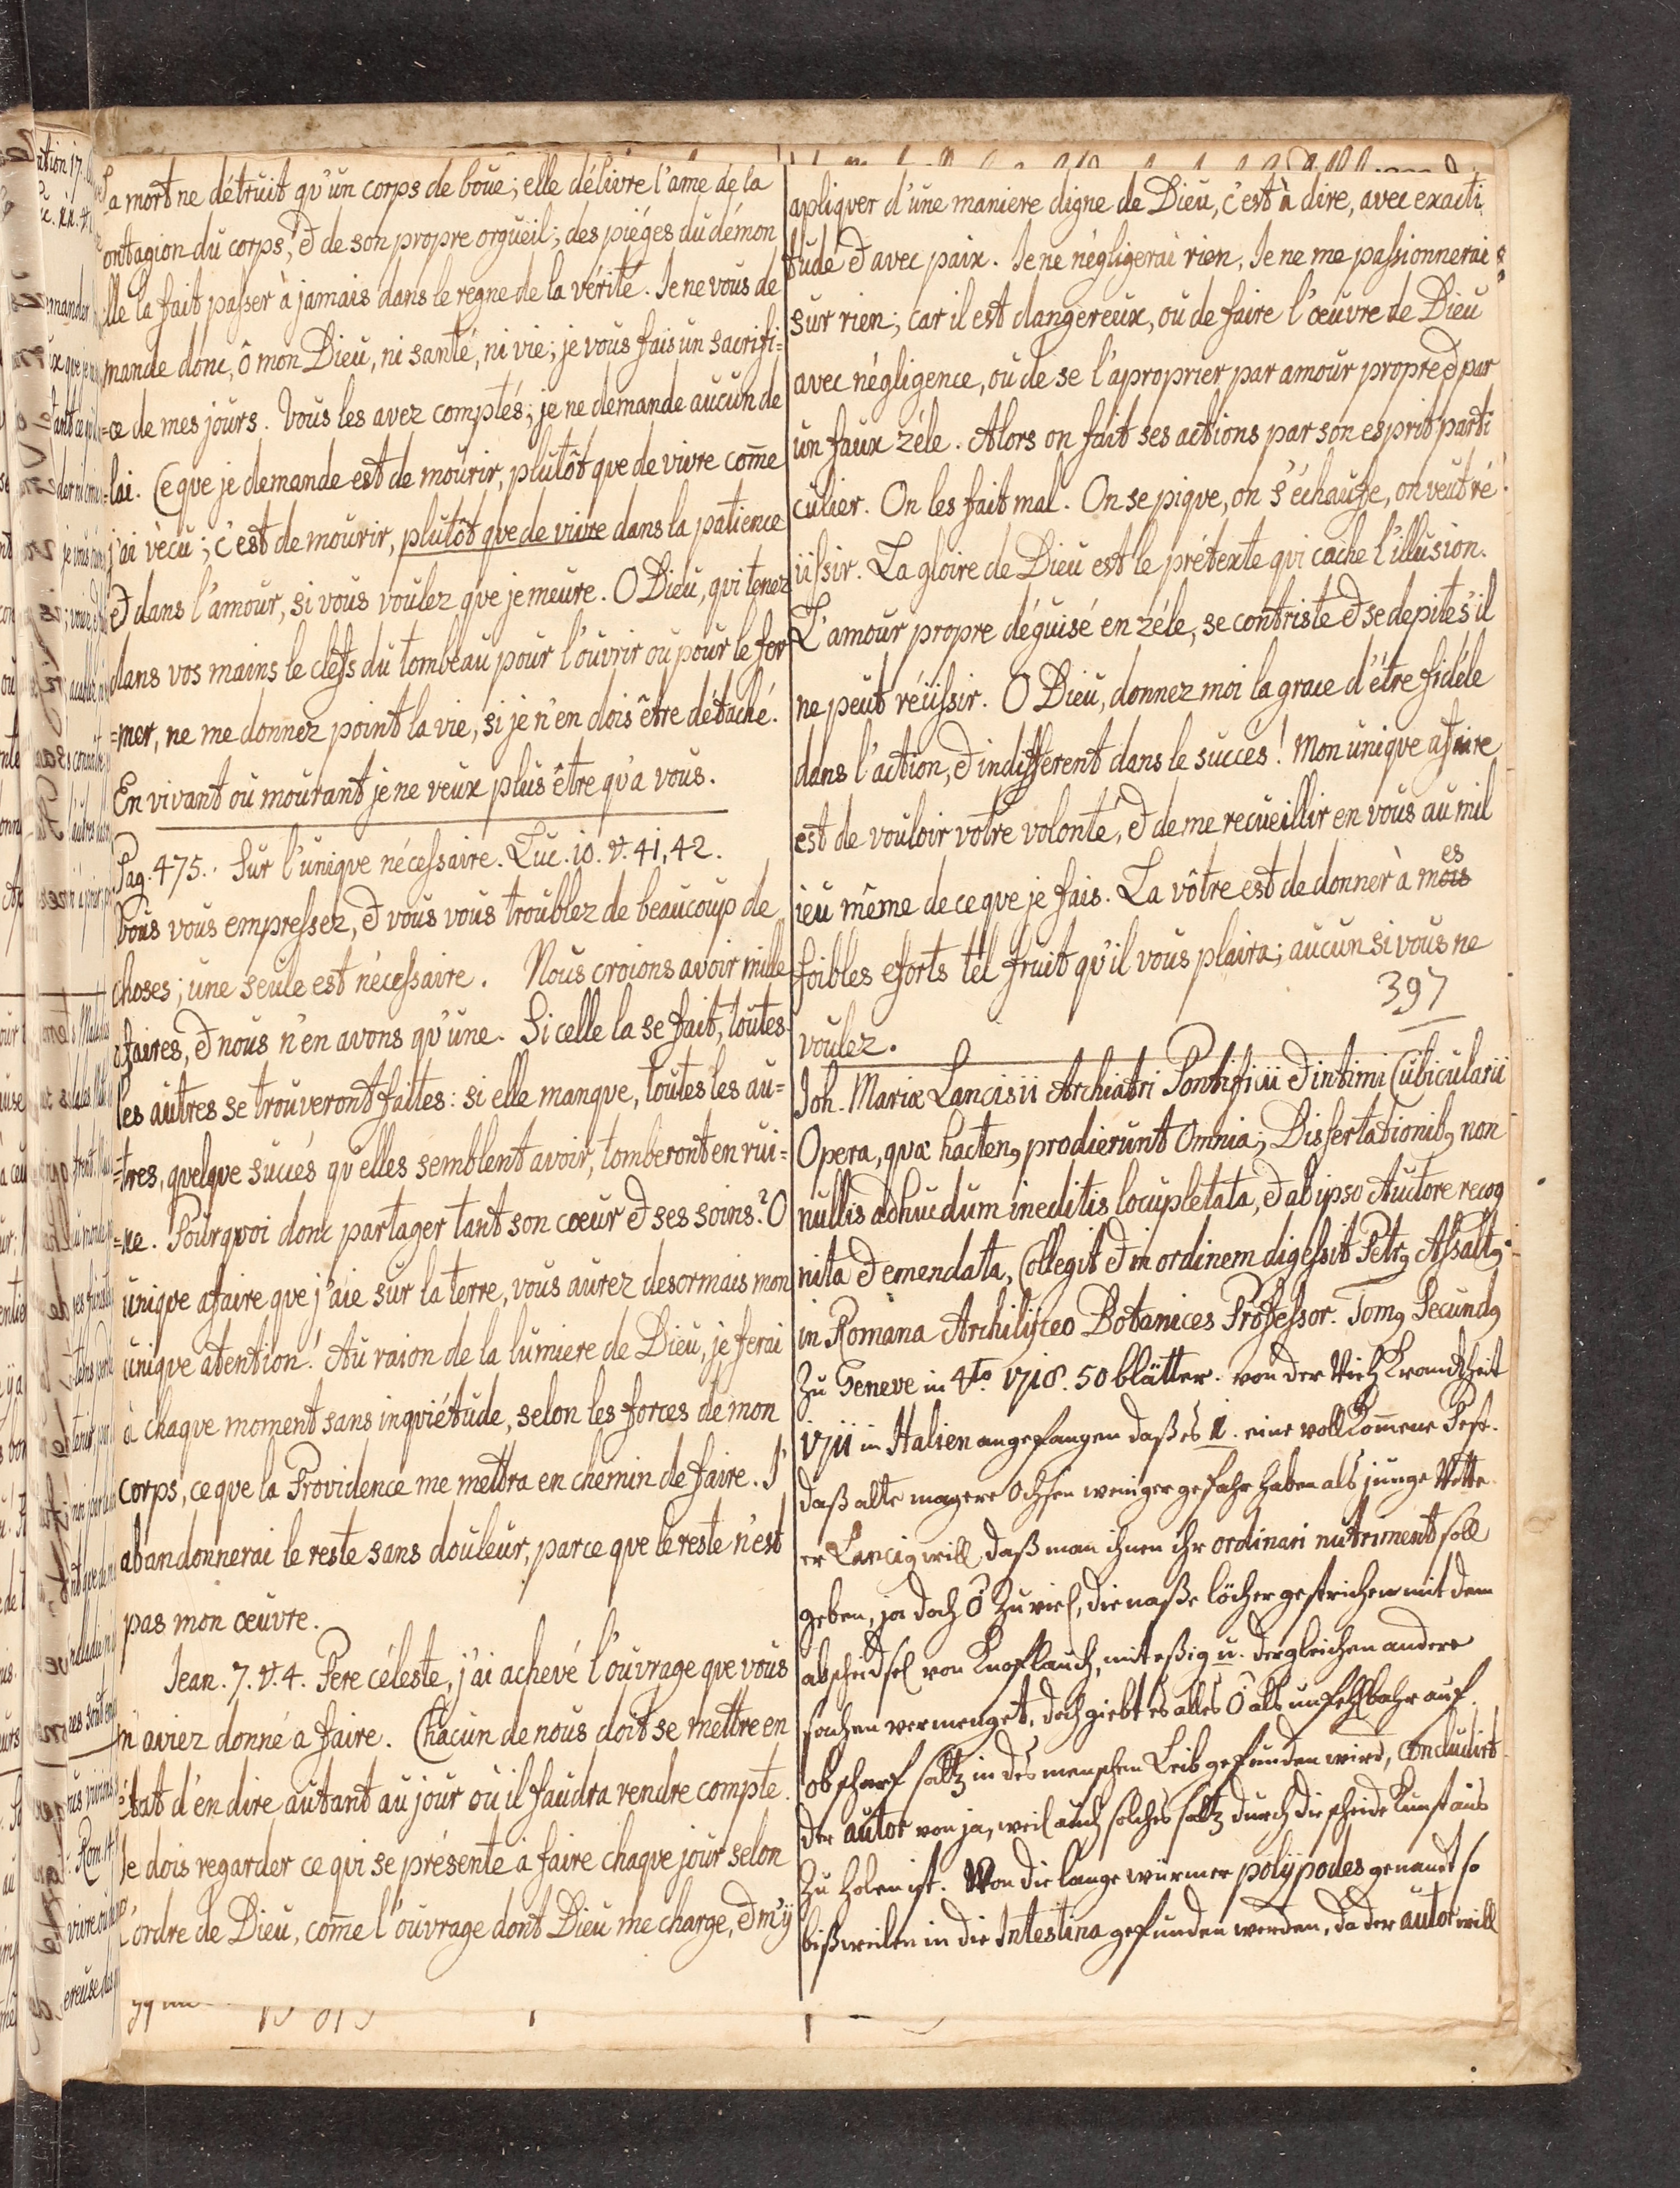 La mort ne détruit qu'un corps de boue; elle délivre l'ame de la
contagion du corps, & de son propre orgueil; des piéges du démon
elle la fait passer à jamais dans le regne de la vérité. Je ne vous de
mande donc, ô mon Dieu, ni santé, ni vie; je vous fais un sacrifi-
=ce de mes jours. Vous les avez comptés; je ne demande aucun de
=lai. Ce que je demande est de mourir, plutôt que de vivre come
j'ai vècu; c'est de mourir, plutôt que de vivre dans la patience
& dans l'amour, si vous voulez que je meure. O Dieu, qui tenez
dans vos mains le clefs du tombeau pour l'ouvrir ou pour le fer
=mer, ne me donnez point la vie, si je n'en dois être détaché.
En vivant ou mourant je ne veux plus être qu'a vous.
Pag. 475. Sur l'unique nécessaire. Luc. 10. v. 41, 42.
Vous vous empressez, & vous vous troublez de beaucoup de
choses; une seule est nécessaire. Nous croions avoir mille
afaires, & nous n'en avons qu'une. Si celle la se fait, toutes
les autres se trouveront faites: si elle manque, toutes les au=
=tres, quelque succés qu'elles semblent avoir, tomberont en rui=
=ne. Pourquoi donc partager tant son cœur & ses soins? O
unique afaire que j'aie sur la terre, vous aurez desormais mon
unique atention! Au raion de la lumiere de Dieu, je ferai
à chaque moment sans inquiétude, selon les forces de mon
corps, ce que la Providence me mettra en chemin de faire. J'
abandonnerai le reste sans douleur, parce que le reste n'est
pas mon œuvre.
Jean. 7. v. 4. Pere céleste, j'ai achevé l'ouvrage que vous
m'aviez donné a faire. Chacun de nous doit se mettre en
état d'en dire autant au jour où il faudra rendre compte.
Je dois regarder ce qui se présente a faire chaque jour selon
l'ordre de Dieu, come l'ouvrage dont Dieu me charge, & m'ÿ
apliquer d'une maniere digne de Dieu, c'est à dire, avec exacti
tude & avec paix. Je ne négligerai rien, Je ne me passionnerai
sur rien; car il est dangereux, ou de faire l'œuvre de Dieu
avec négligence, ou de se l'aproprier par amour propre & par
un faux zéle. Alors on fait ses actions par son esprit parti
culier. On les fait mal. On se pique, on s'échaufe, on veut ré
üssir. La gloire de Dieu est le prétexte qui cache l'illusion.
L'amour propre déguisé en zéle, se contriste & se depite s'il
ne peut réüssir. O Dieu, donnez moi la grace d'être fidéle
dans l'action, & indifferent dans le succés! Mon unique afaire
est de vouloir vôtre volonté, & de me recueillir en vous au mil
ieu même de ce que je fais. La vôtre est de donner à mes
foibles eforts tel fruit qu'il vous plaira; aucun si vous ne
397
voulez.
Joh. Mariæ Lancisii Archiatri Pontificii & intimi Cubicularii
Opera, quæ hactenꝰ prodierunt Omnia; Dissertationibꝰ non
nullis adhucdum ineditis locupletata, & ab ipso Auctore recog
nita & emendata, Collegit & in ordinem digessit Petrꝰ Assaltꝰ
in Romana Archilÿceo Botanices Professor. Tomꝰ Secundꝰ
Zu Geneve in 4to. 1718. 50 blätter. von der Viehkranckheit
1711 in Italien angefangen daß es eine vollkomene Pest.
daß alte magere Ochsen weniger gefahr haben als junge Vette
er Lancisꝰ will, daß man ihnen ihr ordinari nutriment soll
geben, ja doch ō zu viel, die naße löcher gestrichen mit dem
von Knoflauch, mit eßig u. dergleichen andere
sachen vermenget, doch giebt es alles ō als unfehlbahr auf.
ob scharf saltz in des menschen Leib gefunden wird, Concludirt
der autor von ja, weil auch solches saltz durch die scheide kunst aus
zu holen ist. Von die lange würmer polÿpodes genandt so
bißweilen in die Intestina gefunden werden, da der autor will